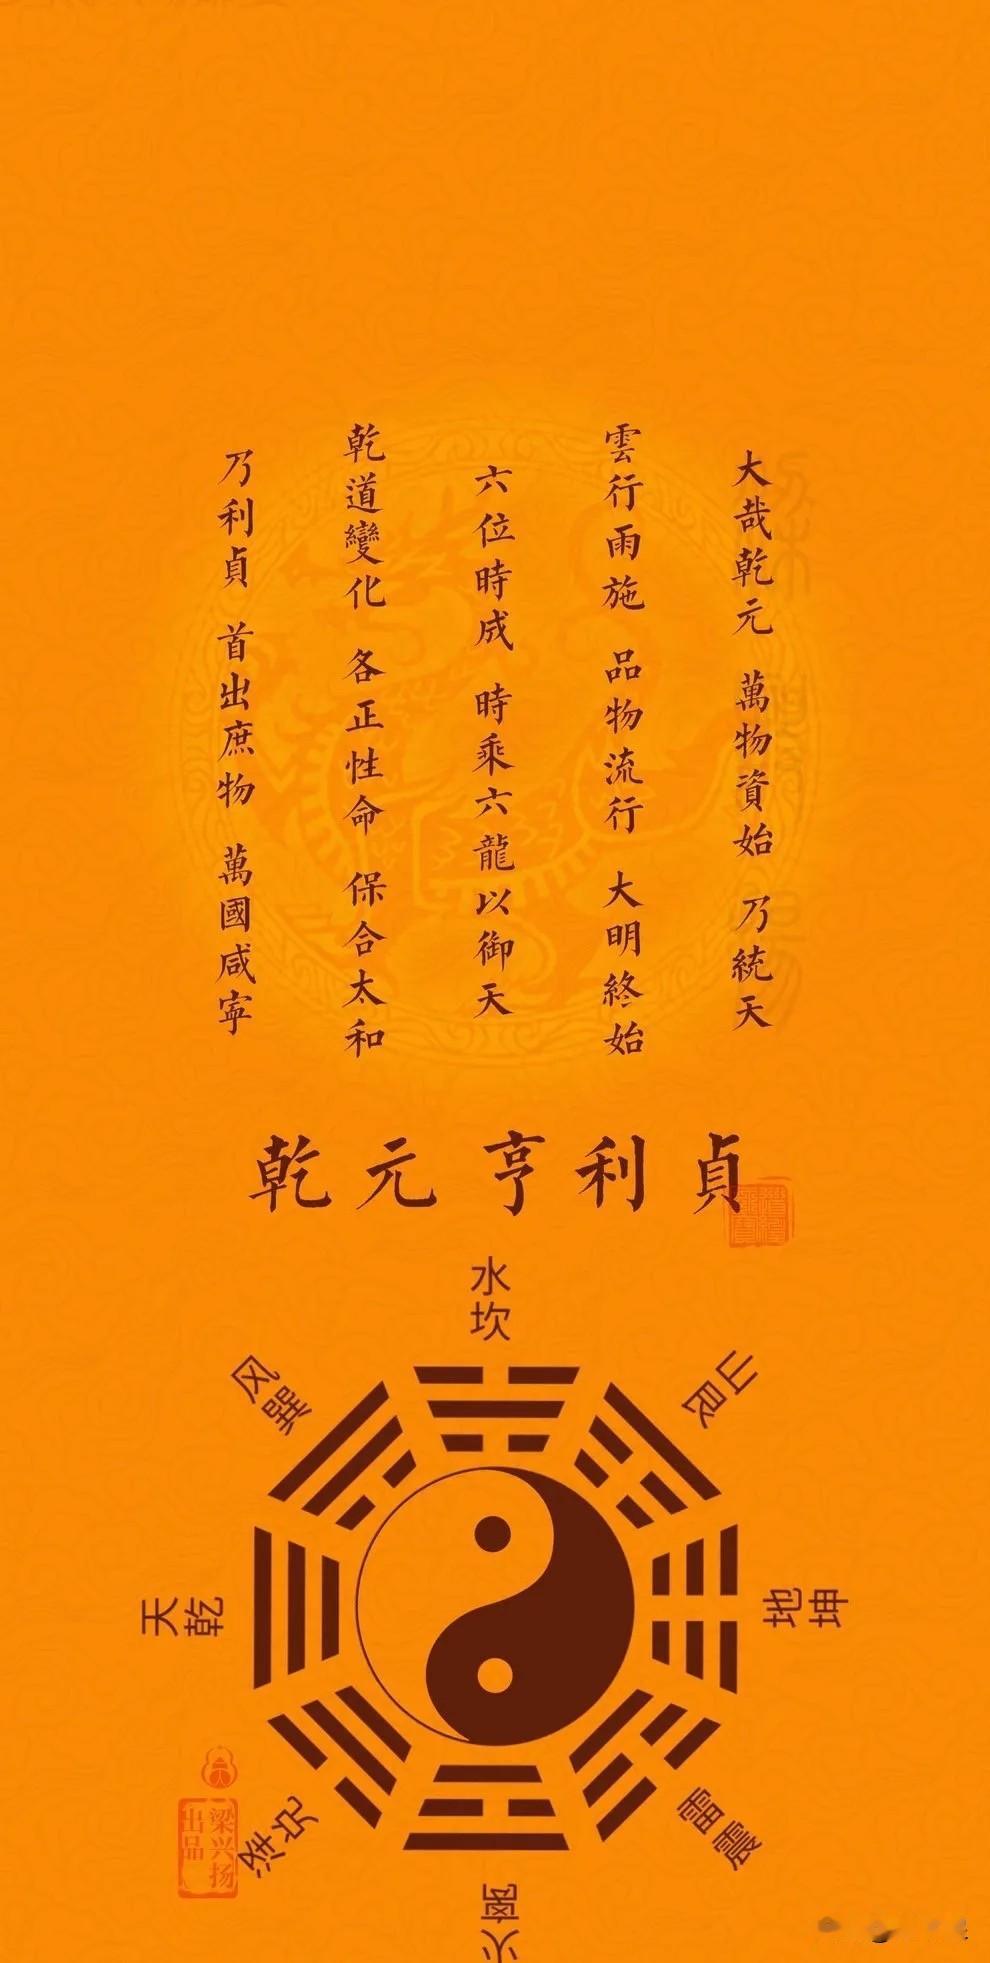 大哉乾元 萬物資始 乃統天
雲行雨施 品物流行 大明終始
六位時成 時乘六龍以御天
乾道變化 各正性命 保合太和
乃利貞 首出庶物 萬國咸寧
乾元亨利貞
水坎
山艮
地坤
雷震
火離
泽兑
天乾
风巽
梁兴扬
出品